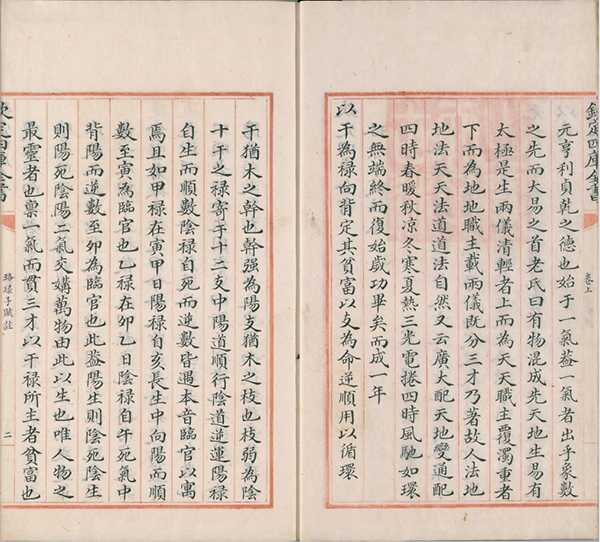 欽定四庫全書
卷上
元亨利貞乾之德也始于一氣葢一氣者出乎象數
之先而大易之首老氏曰有物混成先天地生易有
太極是生兩儀清輕者上而為天天職主覆濁重者
下而為地地職主載兩儀既分三才乃著故人法地
地法天天法道道法自然又云廣大配天地變通配
四時春暖秋凉冬寒夏熱三光電捲四時風馳如環
之無端終而復始歲功畢矣而成一年
以干為禄向背定其貧富以支為命逆順用以循環
干猶木之幹也幹强為陽支猶木之枝也枝弱為陰
十干之禄寄于十二支中陽道順行陰道逆運陽禄
自生而順數陰禄自死而逆數皆遇本音臨官以寓
焉且如甲禄在寅甲日陽禄自亥長生中向陽而順
數至寅為臨官也乙禄在卯乙日陰禄自午死氣中
背陽而逆數至卯為臨官也此葢陽生則陰死陰生
則陽死陰陽二氣交媾萬物由此以生也唯人物之
最靈者也禀一氣而貫三才以干禄所主者貧富也
欽定四庫全書
珞琭子賦註
二